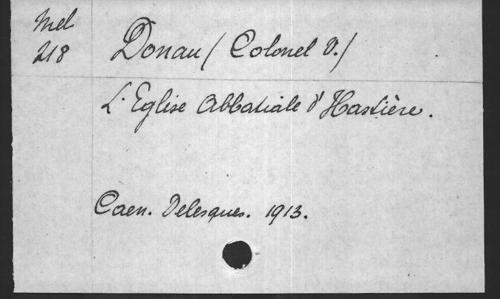 Mel
218
Donau (Colonel V.)
L'Eglise Abbatiale d'Hastière.
Caen. Delesques. 1913.